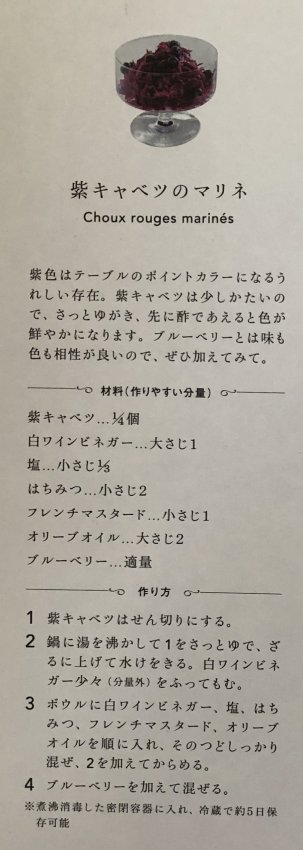 紫キャベツのマリネ
Choux rouges marinés
紫色はテーブルのポイントカラーになるう
れしい存在。紫キャベツは少しかたいの
で、さっとゆがき、先に酢であえると色が
鮮やかになります。ブルーベリーとは味も
色も相性が良いので、ぜひ加えてみて。
材料(作りやすい分量)
紫キャベツ…¼個
白ワインビネガー…大さじ1
塩…小さじ⅓
はちみつ…小さじ2
フレンチマスタード…小さじ1
オリーブオイル…大さじ2
ブルーベリー…適量
作り方
1 紫キャベツはせん切りにする。
2 鍋に湯を沸かして1をさっとゆで、ざ
るに上げて水けをきる。白ワインビネ
ガー少々(分量外)をふってもむ。
3 ボウルに白ワインビネガー、塩、はち
みつ、フレンチマスタード、オリーブ
オイルを順に入れ、そのつどしっかり
混ぜ、2を加えてからめる。
4 ブルーベリーを加えて混ぜる。
※煮沸消毒した密閉容器に入れ、冷蔵で約5日保
存可能